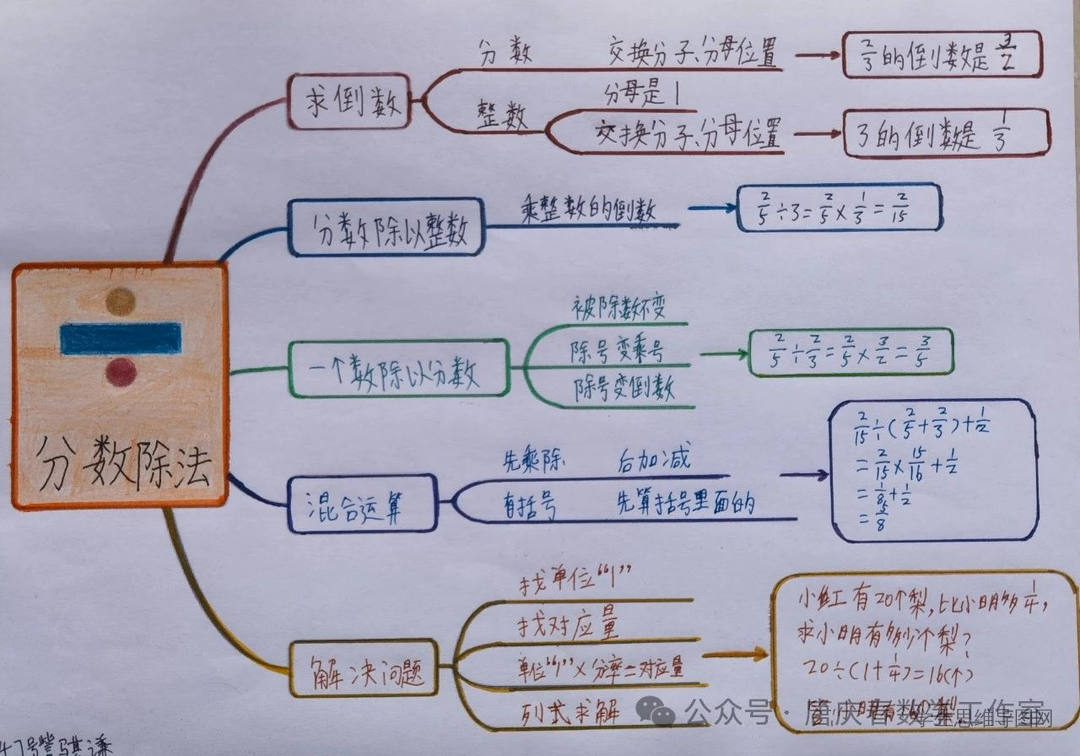 分数除法
求倒数
分数 交换分子、分母位置
2/3的倒数是3/2
整数
分母是1
交换分子、分母位置
3的倒数是1/3
分数除以整数
乘整数的倒数
2/5÷3=2/5×1/3=2/15
一个数除以分数
被除数不变
除号变乘号
除号变倒数
2/5÷2/3=2/5×3/2=3/5
混合运算
先乘除 后加减
有括号 先算括号里面的
2/15÷(2/5+2/3)+1/2
=2/15×15/16+1/2
=1/8+1/2
=5/8
解决问题
找单位“1”
找对应量
单位“1”×分率=对应量
列式求解
小红有20个梨,比小明多1/4,
求小明有多少个梨?
20÷(1+1/4)=16(个)
公众号·唐庆春数学工作室
思维导图网